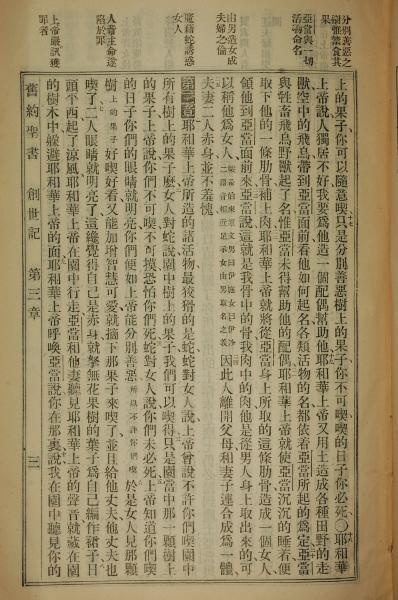 分別善惡之
樹禁食其
果
亞當與一切
活物命名
由男造女成
夫婦之倫
魔藉蛇誘惑
女人
人違主命遂
陷於罪
上帝嚴試獲
罪者
上的果子你可以隨意喫只是分別善惡樹上的果子你不可喫喫的日子你必死〇耶和華
上帝說人獨居不好我要爲他造一個配偶幫助他耶和華上帝又用土造成各種田野的走
獸空中的飛鳥帶到亞當面前看他如何起名各類活物的名都依着亞當所起的爲定亞當
與牲畜飛鳥野獸起了名惟亞當未得幫助他的配偶耶和華上帝就使亞當沉沉的睡着便
取下他的一條肋骨補上肉耶和華上帝就將從亞當身上所取的這條肋骨造成一個女人
領他到亞當面前來亞當說這就是我骨中的骨我肉中的肉他是從男人身上取出來的可
以稱他爲女人因此人離開父母和妻子連合成爲一體
夫妻二人赤身並不羞愧
第三章耶和華上帝所造的諸活物最狡猾的是蛇蛇對女人說上帝曾說不許你們喫園中
所有樹上的果子麽女人對蛇說園中樹上的果子我們可以喫得只是園當中那一顆樹上
的果子上帝說你們不可喫不可摸恐怕你們死蛇對女人說你們未必死上帝知道你們喫
的日子你們的眼睛就明亮你們便如上帝能分別善惡所以不許你們喫於是女人見那顆
樹上的果子好喫好看又能加增智慧可愛就摘下那果子來喫了並且給他丈夫他丈夫也
喫了二人眼睛就明亮了這纔覺得自己是赤身就拏無花果樹的葉子爲自己編作裙子日
頭平西起了涼風耶和華上帝在園中行走亞當和他妻聽見耶和華上帝的聲音就藏在園
的樹木中躱避耶和華上帝的面耶和華上帝呼喚亞當說你在那裏說我在園中聽見你的
舊約聖書 創世記 第三章 三